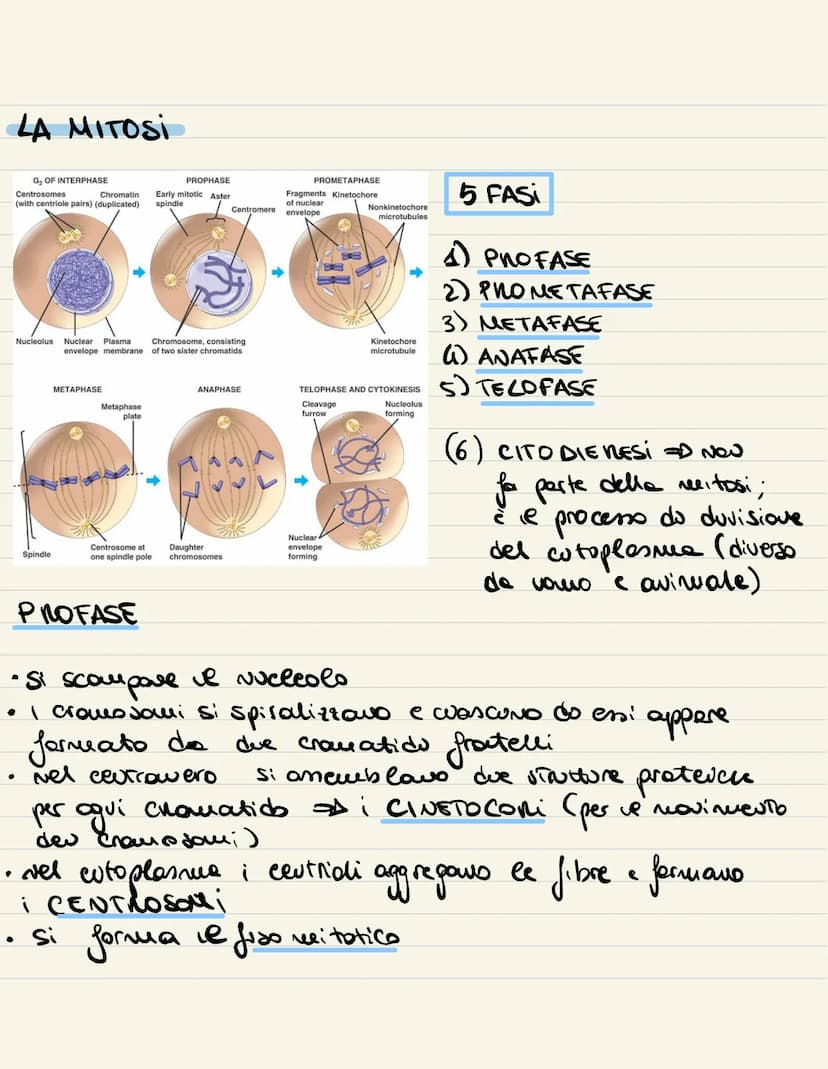 LA MITOSI
G₂ OF INTERPHASE
Centrosomes
(with centriole pairs)
Chromatin
(duplicated)
Nucleolus
Nuclear
envelope
Plasma
membrane
PROPHASE
Early mitotic
spindle
Aster
Centromere
Chromosome, consisting
of two sister chromatids
PROMETAPHASE
Fragments
of nuclear
envelope
Kinetochore
Nonkinetochore
microtubules
Kinetochore
microtubule
METAPHASE
Metaphase
plate
Spindle
Centrosome at
one spindle pole
ANAPHASE
Daughter
chromosomes
TELOPHASE AND CYTOKINESIS
Cleavage
furrow
Nucleolus
forming
Nuclear
envelope
forming
5 FASI
1) PROFASE
2) PROMETAFASE
3) METAFASE
4) ANAFASE
5) TELOFASE
(6) CITODIERESI => NON
fa parte della mitosi;
è il processo di divisione
del citoplasma (diverso
da uomo e animale)
PROFASE
• Si scompare il nucleolo
• I cromosomi si spiralizzano e ciascuno di essi appare
formato da due cromatidi fratelli
• Nel centromero si assemblano due strutture proteiche
per ogni cromatidio => i CINETOCORI (per il movimento
dei cromosomi)
• Nel citoplasma i centrioli aggregano le fibre e formano
i CENTROSOMI
• Si forma il fuso mitotico